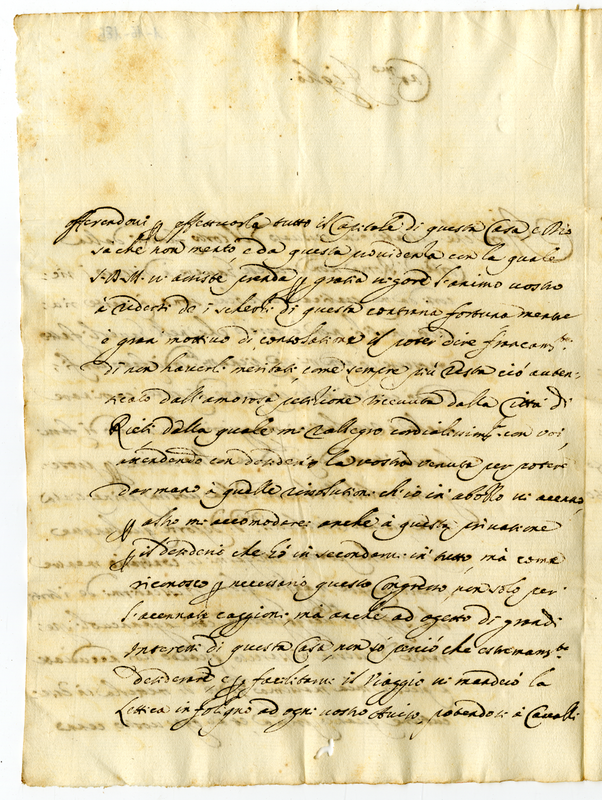 offerendoui ꝑ effettuarla tutto il Capitale di questa Casa e
sache non mento e da questa uiuidenza con la quale
S. D. M. ui assiste prenda ꝑ gratia uigore l'animo uostro
à riderti de i scherzi di questa contraria fortuna mentre
è gran' mottiuo di consolatione il poter dire francam.te
di non hauerli meritati, come sempre più resta ciò auten=
ticato dall'amorosa petitione riceuuta dalla Città di
Rieti dalla quale mi rallegro cordialissim.te con uoi,
attendendo con desiderio la uostra uenuta per poter
dar mano à quelle resolutioni ch'io in' abozzo ui accenno,
ꝑ altro mi accomoderei anche à questa priuatione
ꝑ il desiderio che hò in secondarui in' tutto, mà come
riconosco ꝑ necessario questo Congresso non solo per
l'accennate caggioni, ma anche ad oggetto di grandi
Interessi di questa Casa, non hò perciò che estremam.te
desiderare e ꝑ facilitarui il Viaggio ui manderò la
Lettica in foligno ad ogni uostro Auiso, potendosi i Caualli